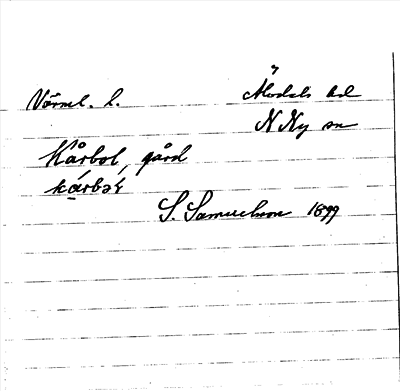 Värml. l. Älvdals hd
N Ny sn
Kårbol, gård
S. Samuelson 1899